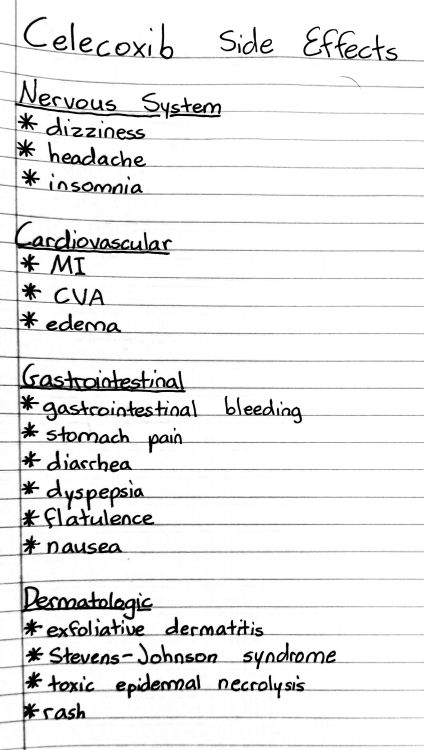 Celecoxib Side Effects
Nervous System
* dizziness
* headache
* insomnia
Cardiovascular
* MI
* CVA
* edema
Gastrointestinal
* gastrointestinal bleeding
* stomach pain
* diarrhea
* dyspepsia
* flatulence
* nausea
Dermatologic
* exfoliative dermatitis
* Stevens-Johnson syndrome
* toxic epidermal necrolysis
* rash